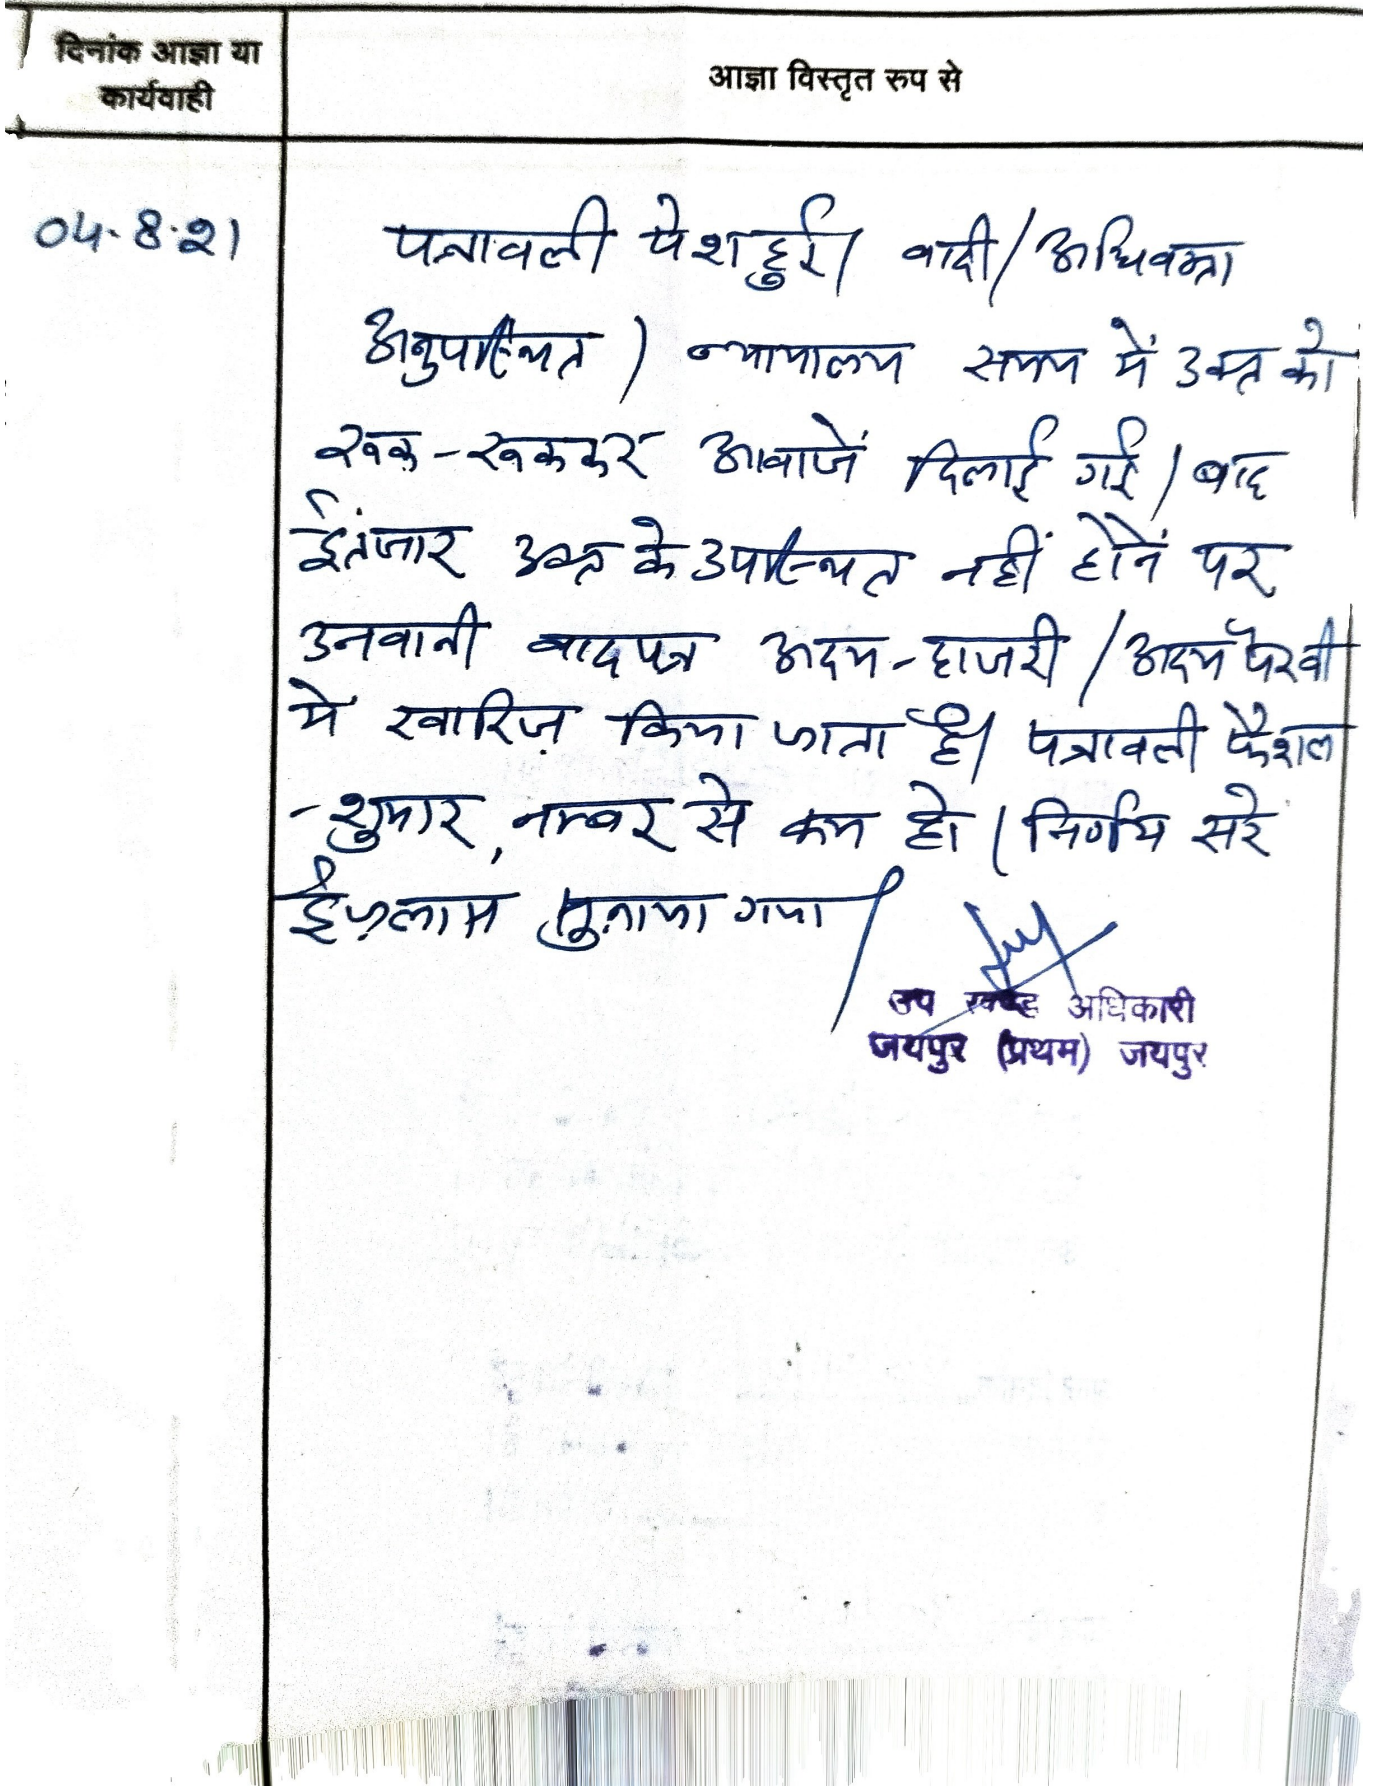 दिनांक आज्ञा या
कार्यवाही
आज्ञा विस्तृत रुप से
04.8.21
पत्रावली पेश हुई। वादी/अधिवक्ता
अनुपस्थित। न्यायालय समय में उक्त को
रूक-रूककर आवाजें दिलाई गई। बाद
ईतंजार उक्त के उपस्थित नहीं होनें पर
उनवानी वादपत्र अदम-हाजरी/अदम पैरवी
में खारिज़ किया जाता है। पत्रावली फैशल
-शुमार, नम्बर से कम हो। निर्णय सरे
ईज़लास सुनाया गया।
उप खण्ड अधिकारी
जयपुर (प्रथम) जयपुर